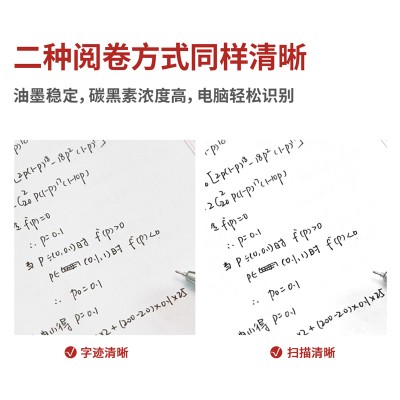 二种阅卷方式同样清晰
油墨稳定，碳黑素浓度高，电脑轻松识别
[2p(1-p)¹⁸-18p²(1-p)¹⁷]
C₂₀² p(1-p)¹⁷(1-10p)
f'(p)=0
∴ p=0.1
当 p∈(0,0.1)时 f'(p)>0
p∈ (0.1,1)时 f'(p)<0
∴ p₀=0.1
p=0.1
×2+(200-20)×0.1×25
0[2p(1-p)¹⁸-18p²(1-p)¹⁷]
2C₂₀² p(1-p)¹⁷(1-10p)
f'(p)=0
∴ p=0.1
当 p∈(0,0.1)时 f'(p)>0
p∈ (0.1,1)时 f'(p)<0
∴ p₀=0.1
p=0.1
×2+(200-20)×0.1×25
字迹清晰
扫描清晰